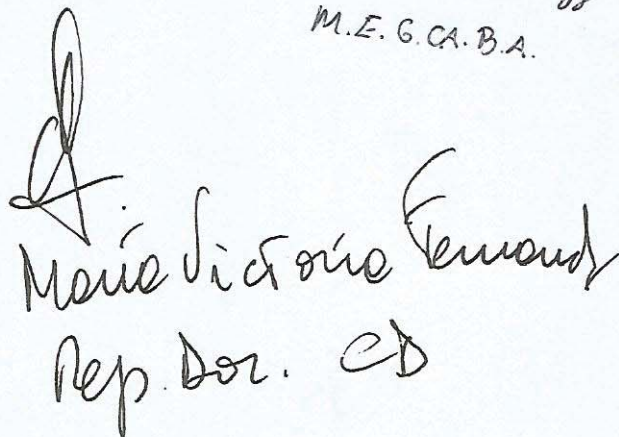 M.E.G.CA.B.A.
María Victoria Fernandz
Rep. Doc. CD